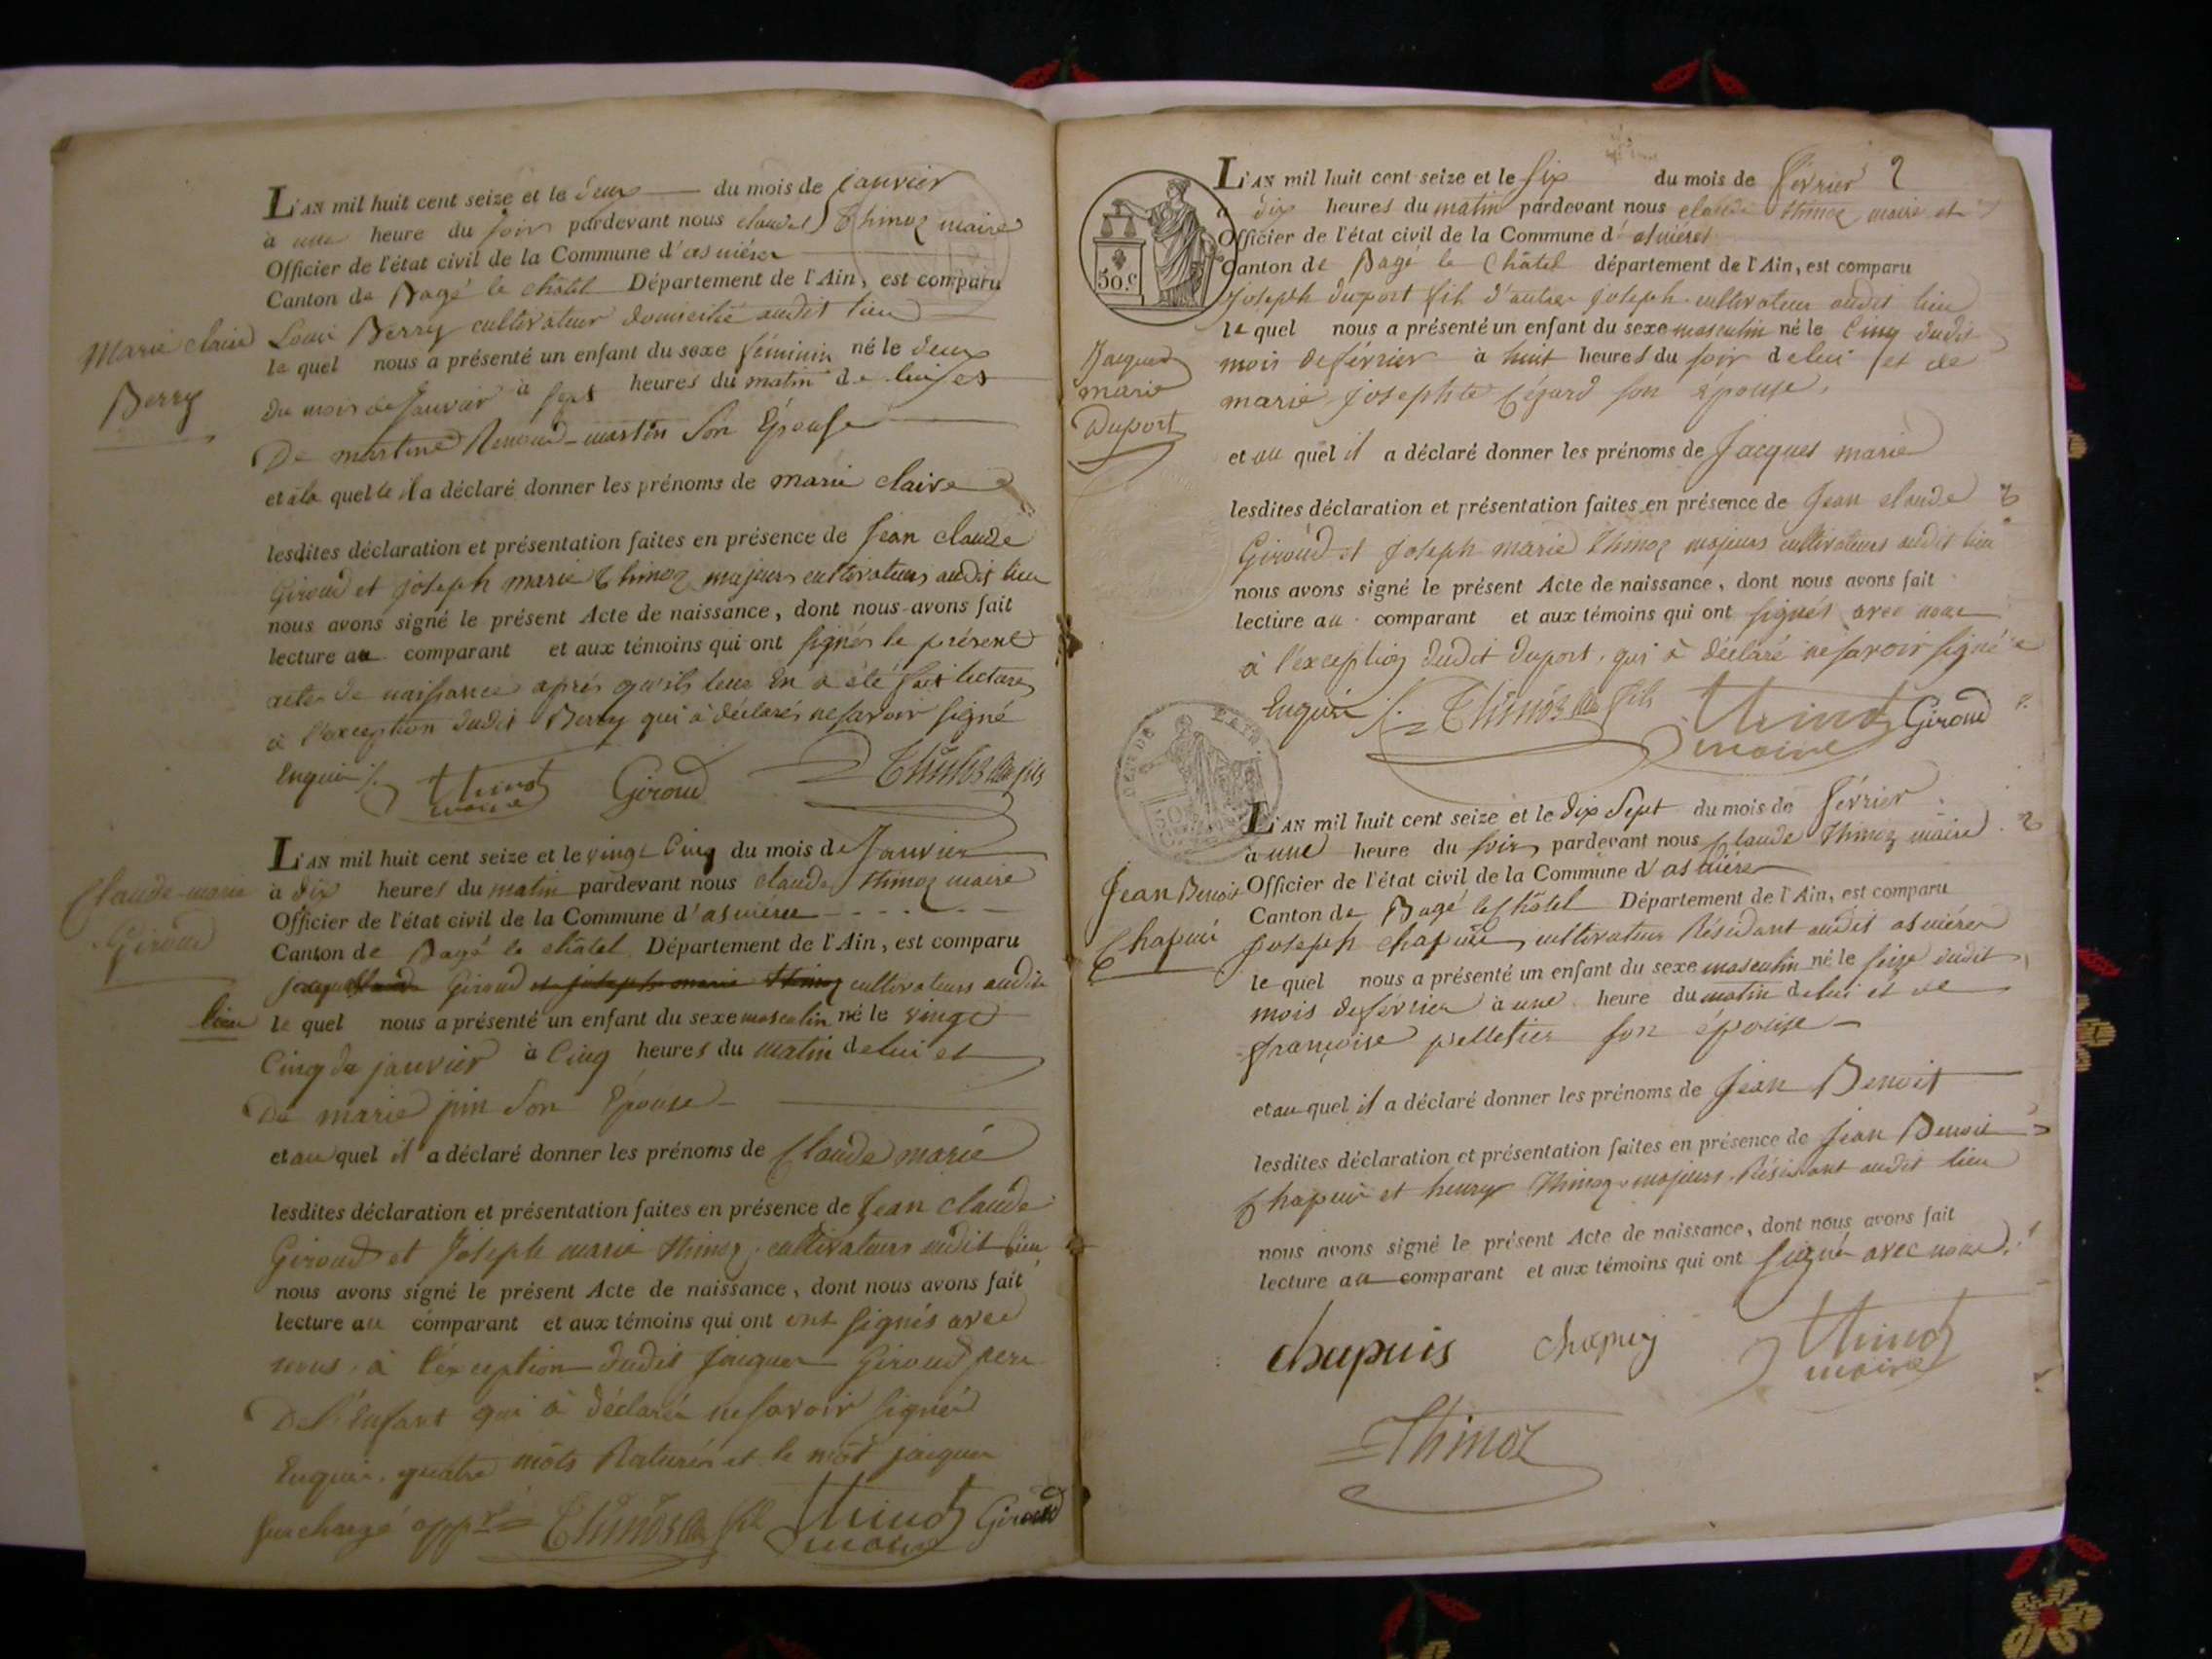 L'AN mil huit cent seize et le deux du mois de janvier
à une heure du soir pardevant nous claude Thimoz maire
Officier de l'état civil de la Commune d'asnières
Canton de Bagé le châtel Département de l'Ain, est comparu
Marie claire
Berry
Louis Berry cultivateur domicilié audit lieu
le quel nous a présenté un enfant du sexe féminin né le deux
du mois de Janvier à sept heures du matin de lui et
De martine Renoud-martin Son Épouse
et à la quelle il a déclaré donner les prénoms de marie claire
lesdites déclaration et présentation faites en présence de Jean claude
Giroud et joseph marie Thimoz majeurs cultivateurs audit lieu
nous avons signé le présent Acte de naissance, dont nous avons fait
lecture au comparant et aux témoins qui ont signés le présent
acte de naissance après qu'ils leur En a été fait lecture
à l'exception dudit Berry qui à déclarés ne savoir signé
Enquis
Thimoz
maire
Giroud
Thimoz fils
L'AN mil huit cent seize et le vingt Cinq du mois de Janvier
à dix heures du matin pardevant nous claude thimoz maire
Officier de l'état civil de la Commune d'asnières
Canton de Bagé le châtel Département de l'Ain, est comparu
Claude-marie
Giroud
jacques Giroud et joseph marie thimoz cultivateurs audit
lieu
le quel nous a présenté un enfant du sexe masculin né le vingt
Cinq de janvier à Cinq heures du matin de lui et
De marie pin Son Épouse
et au quel il a déclaré donner les prénoms de Claude marie
lesdites déclaration et présentation faites en présence de Jean claude
Giroud et Joseph marie thimoz cultivateurs audit lieu
nous avons signé le présent Acte de naissance, dont nous avons fait
lecture au comparant et aux témoins qui ont ont signés avec
nous à l'exception dudit jacques Giroud pere
De l'enfant qui à déclaré ne savoir signer
Enquis. quatre mots Raturés et le mot jacques
surchargé appvé
Thimoz fils
Thimoz
maire
Giroud
L'AN mil huit cent seize et le six du mois de février
2
à dix heures du matin pardevant nous claude thimoz maire et
Officier de l'état civil de la Commune d'asnières
Canton de Bagé le Châtel département de l'Ain, est comparu
50.c
Joseph duport fils d'autre joseph cultivateur audit lieu
le quel nous a présenté un enfant du sexe masculin né le Cinq dudit
mois de février à huit heures du soir de lui et de
Jacques
marie
Duport
marie josephte son épouse
et au quel il a déclaré donner les prénoms de Jacques marie
lesdites déclaration et présentation faites en présence de Jean claude
Giroud et Joseph marie thimoz majeurs cultivateurs audit lieu
nous avons signé le présent Acte de naissance, dont nous avons fait
lecture au comparant et aux témoins qui ont signés avec nous
à l'exception dudit duport, qui à déclaré ne savoir signé
Enquis
Thimoz fils
Thimoz
maire
Giroud
L'AN mil huit cent seize et le dix Sept du mois de février
à une heure du soir pardevant nous Claude thimoz maire
Officier de l'état civil de la Commune d'asnières
Canton de Bagé le Châtel Département de l'Ain, est comparu
Jean Benoit
Chapuis
Joseph chapuis cultivateur Résidant audit asnières
le quel nous a présenté un enfant du sexe masculin né le seize dudit
mois de février à une heure du matin de lui et de
françoise pelletier son épouse
et au quel il a déclaré donner les prénoms de Jean Benoit
lesdites déclaration et présentation faites en présence de Jean Benoit
Chapuis et henry thimoz majeurs Résidant audit lieu
nous avons signé le présent Acte de naissance, dont nous avons fait
lecture au comparant et aux témoins qui ont signé avec nous
chapuis
chapuy
Thimoz
maire
Thimoz